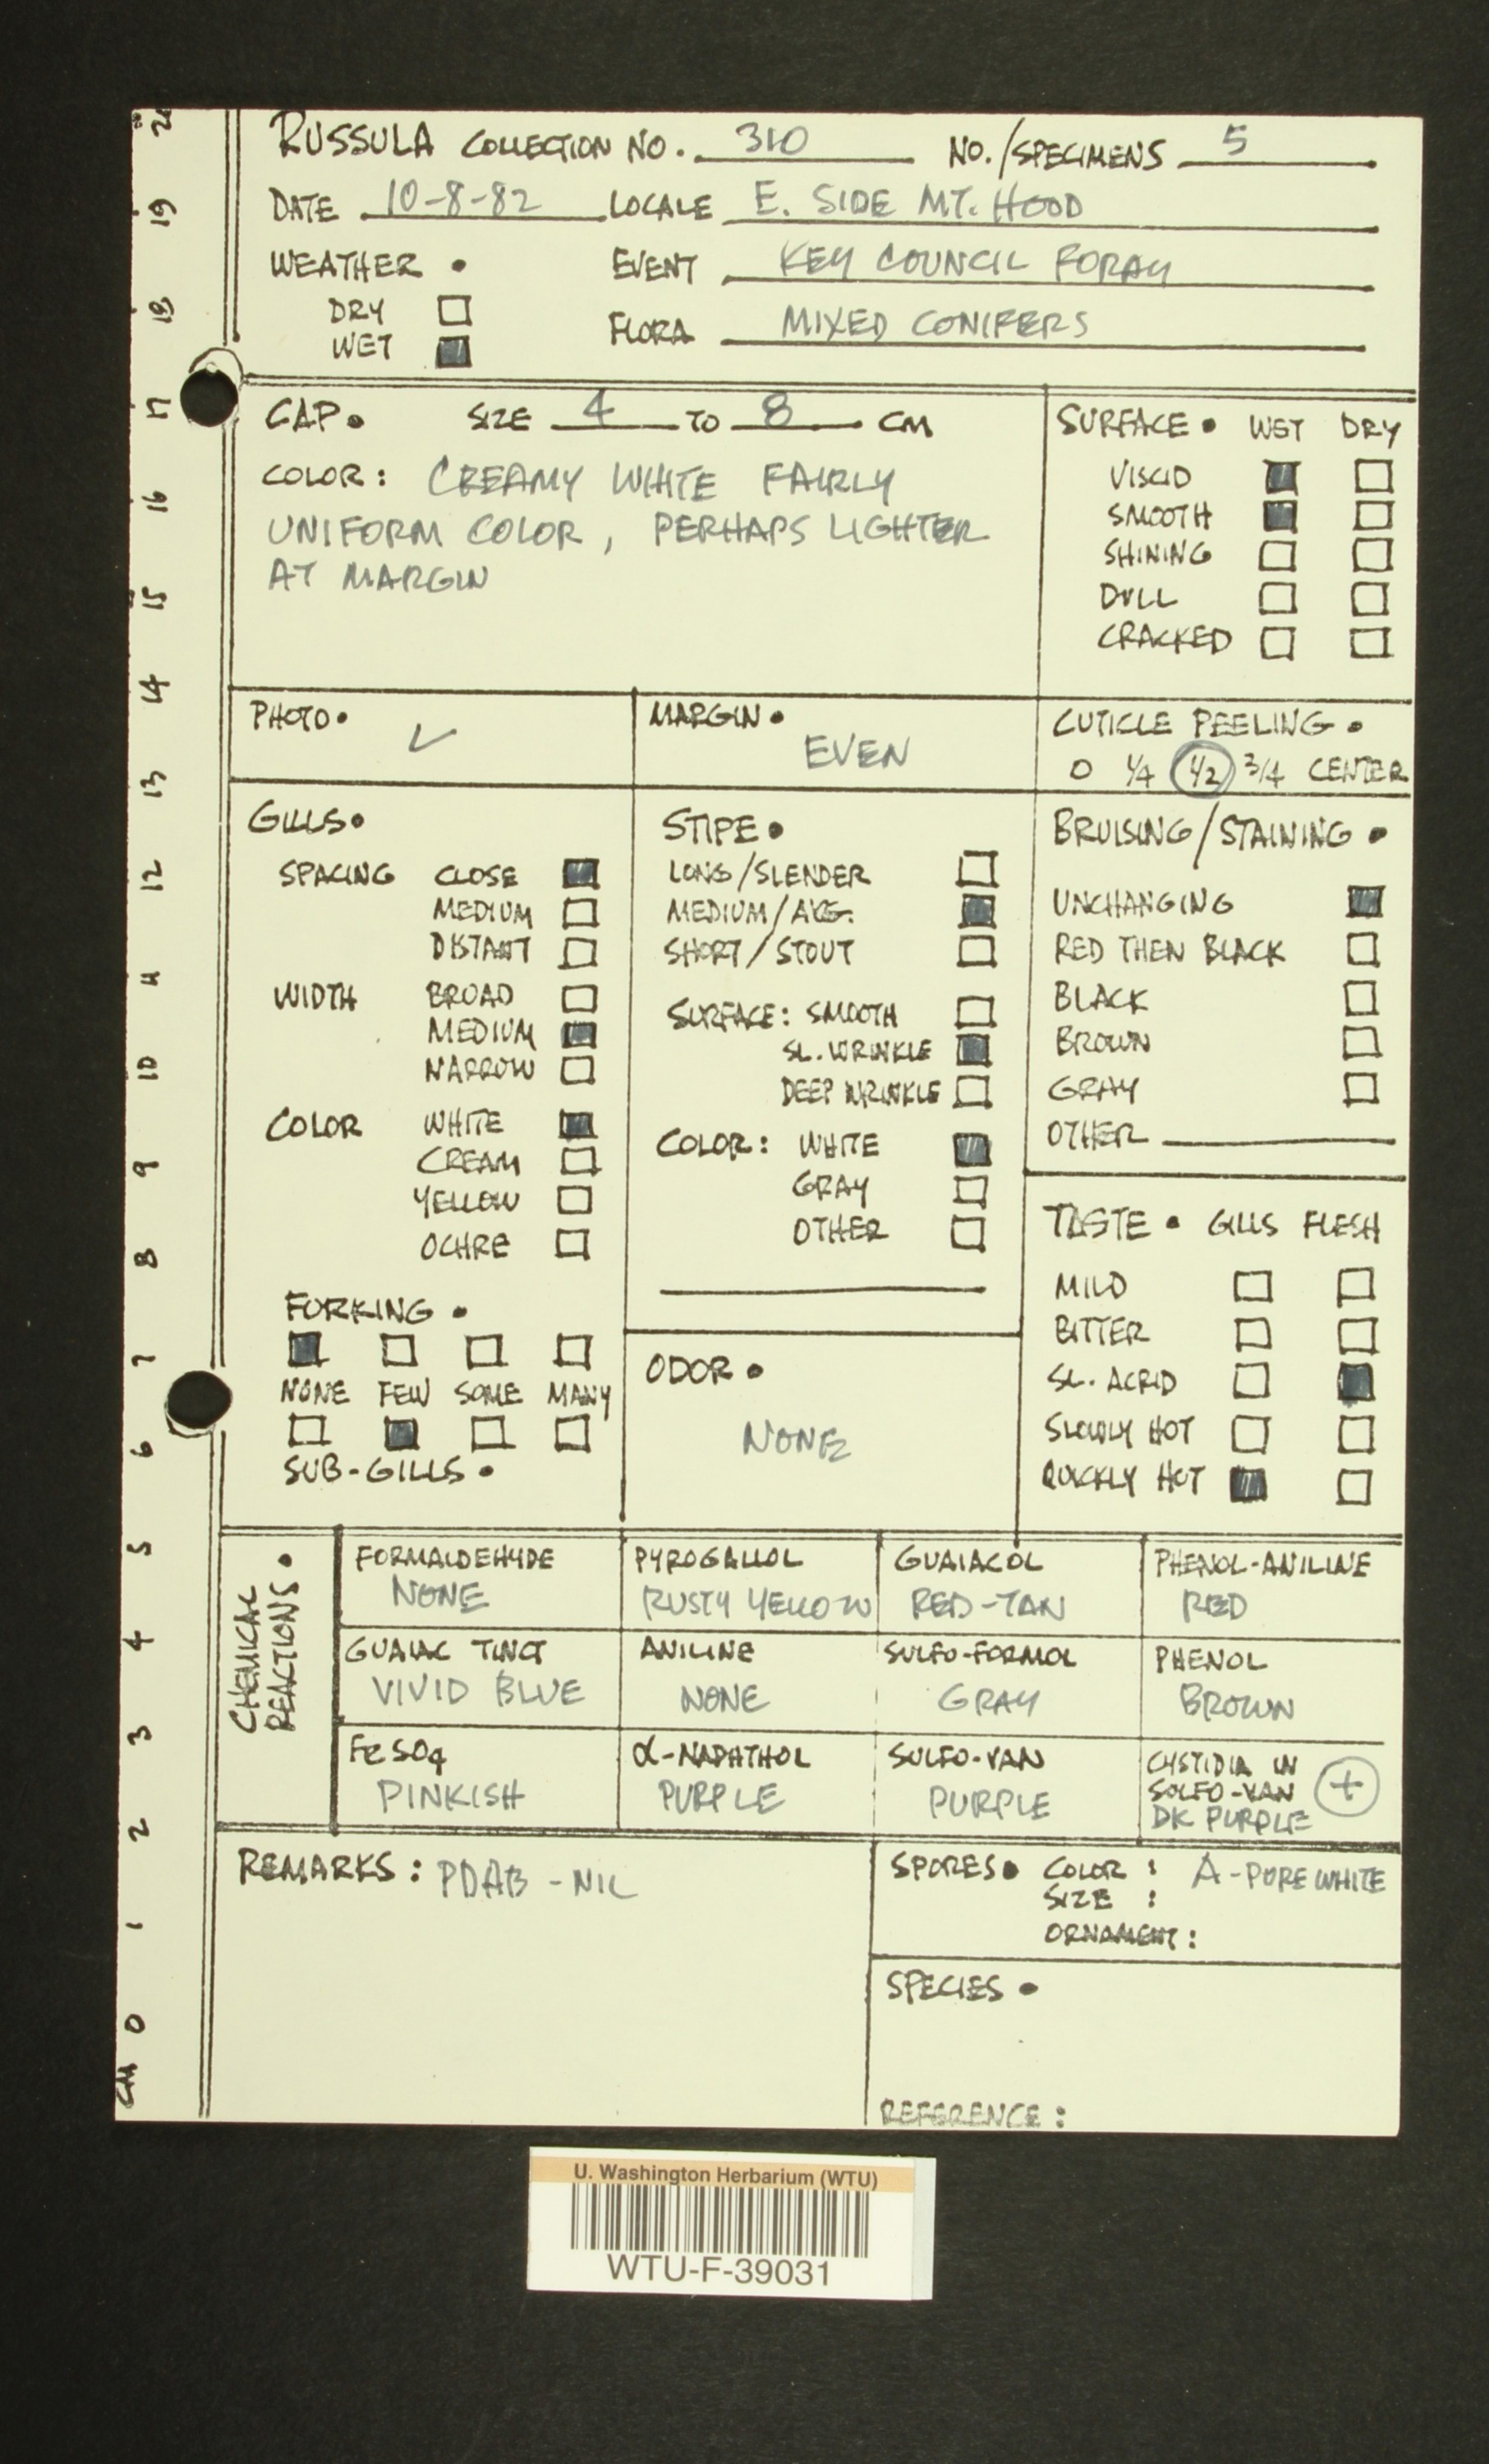 RUSSULA COLLECTION NO. 310 NO./SPECIMENS 5
DATE 10-8-82 LOCALE E. SIDE MT. HOOD
WEATHER • EVENT KEY COUNCIL FORAY
DRY
WET FLORA MIXED CONIFERS
CAP • SIZE 4 TO 8 CM
COLOR: CREAMY WHITE FAIRLY
UNIFORM COLOR, PERHAPS LIGHTER
AT MARGIN
SURFACE • WET DRY
VISCID
SMOOTH
SHINING
DULL
CRACKED
PHOTO • ✓
MARGIN •
EVEN
CUTICLE PEELING •
0 1/4 1/2 3/4 CENTER
GILLS •
SPACING CLOSE
MEDIUM
DISTANT
WIDTH BROAD
MEDIUM
NARROW
COLOR WHITE
CREAM
YELLOW
OCHRE
FORKING •
NONE FEW SOME MANY
SUB-GILLS •
STIPE •
LONG/SLENDER
MEDIUM/AVG.
SHORT/STOUT
SURFACE: SMOOTH
SL. WRINKLE
DEEP WRINKLE
COLOR: WHITE
GRAY
OTHER
ODOR •
NONE
BRUISING/STAINING •
UNCHANGING
RED THEN BLACK
BLACK
BROWN
GRAY
OTHER
TASTE • GILLS FLESH
MILD
BITTER
SL. ACRID
SLOWLY HOT
QUICKLY HOT
CHEMICAL
REACTIONS •
FORMALDEHYDE PYROGALLOL GUAIACOL PHENOL-ANILINE
NONE RUSTY YELLOW RED-TAN RED
GUAIAC TINCT ANILINE SULFO-FORMOL PHENOL
VIVID BLUE NONE GRAY BROWN
FeSO4 α-NAPHTHOL SULFO-VAN
PINKISH PURPLE PURPLE
CYSTIDIA IN
SULFO-VAN +
DK PURPLE
REMARKS: PDAB - NIL
SPORES • COLOR: A-PURE WHITE
SIZE:
ORNAMENT:
SPECIES •
REFERENCE:
CM 0 1 2 3 4 5 6 7 8 9 10 11 12 13 14 15 16 17 18 19 20
U. Washington Herbarium (WTU)
WTU-F-39031